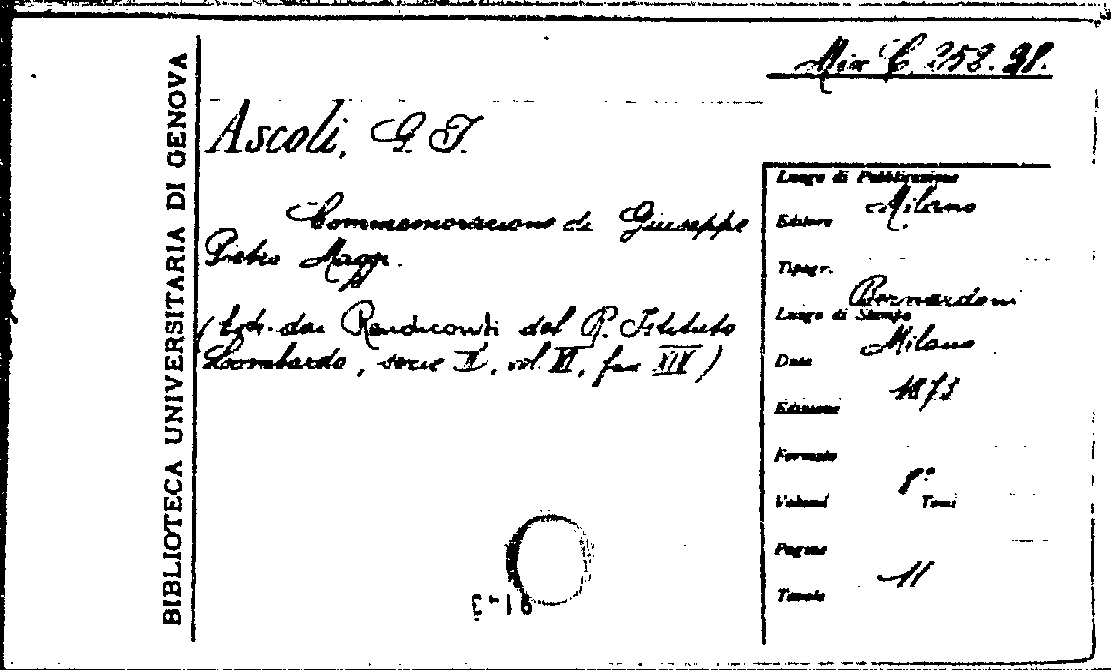 BIBLIOTECA UNIVERSITARIA DI GENOVA
Mix C. 258. 98.
Ascoli, G. I.
Commemorazione di Giuseppe
Pietro Maggi.
(Estr. dai Rendiconti del R. Istituto
Lombardo, serie II, vol. VI, fasc. XIV)
Luogo di Pubblicazione
Milano
Editore
Tipogr.
Bernardoni
Luogo di Stampa
Milano
Data
1873
Edizione
Formato
8°
Volumi Tomi
Pagine
11
Tavole